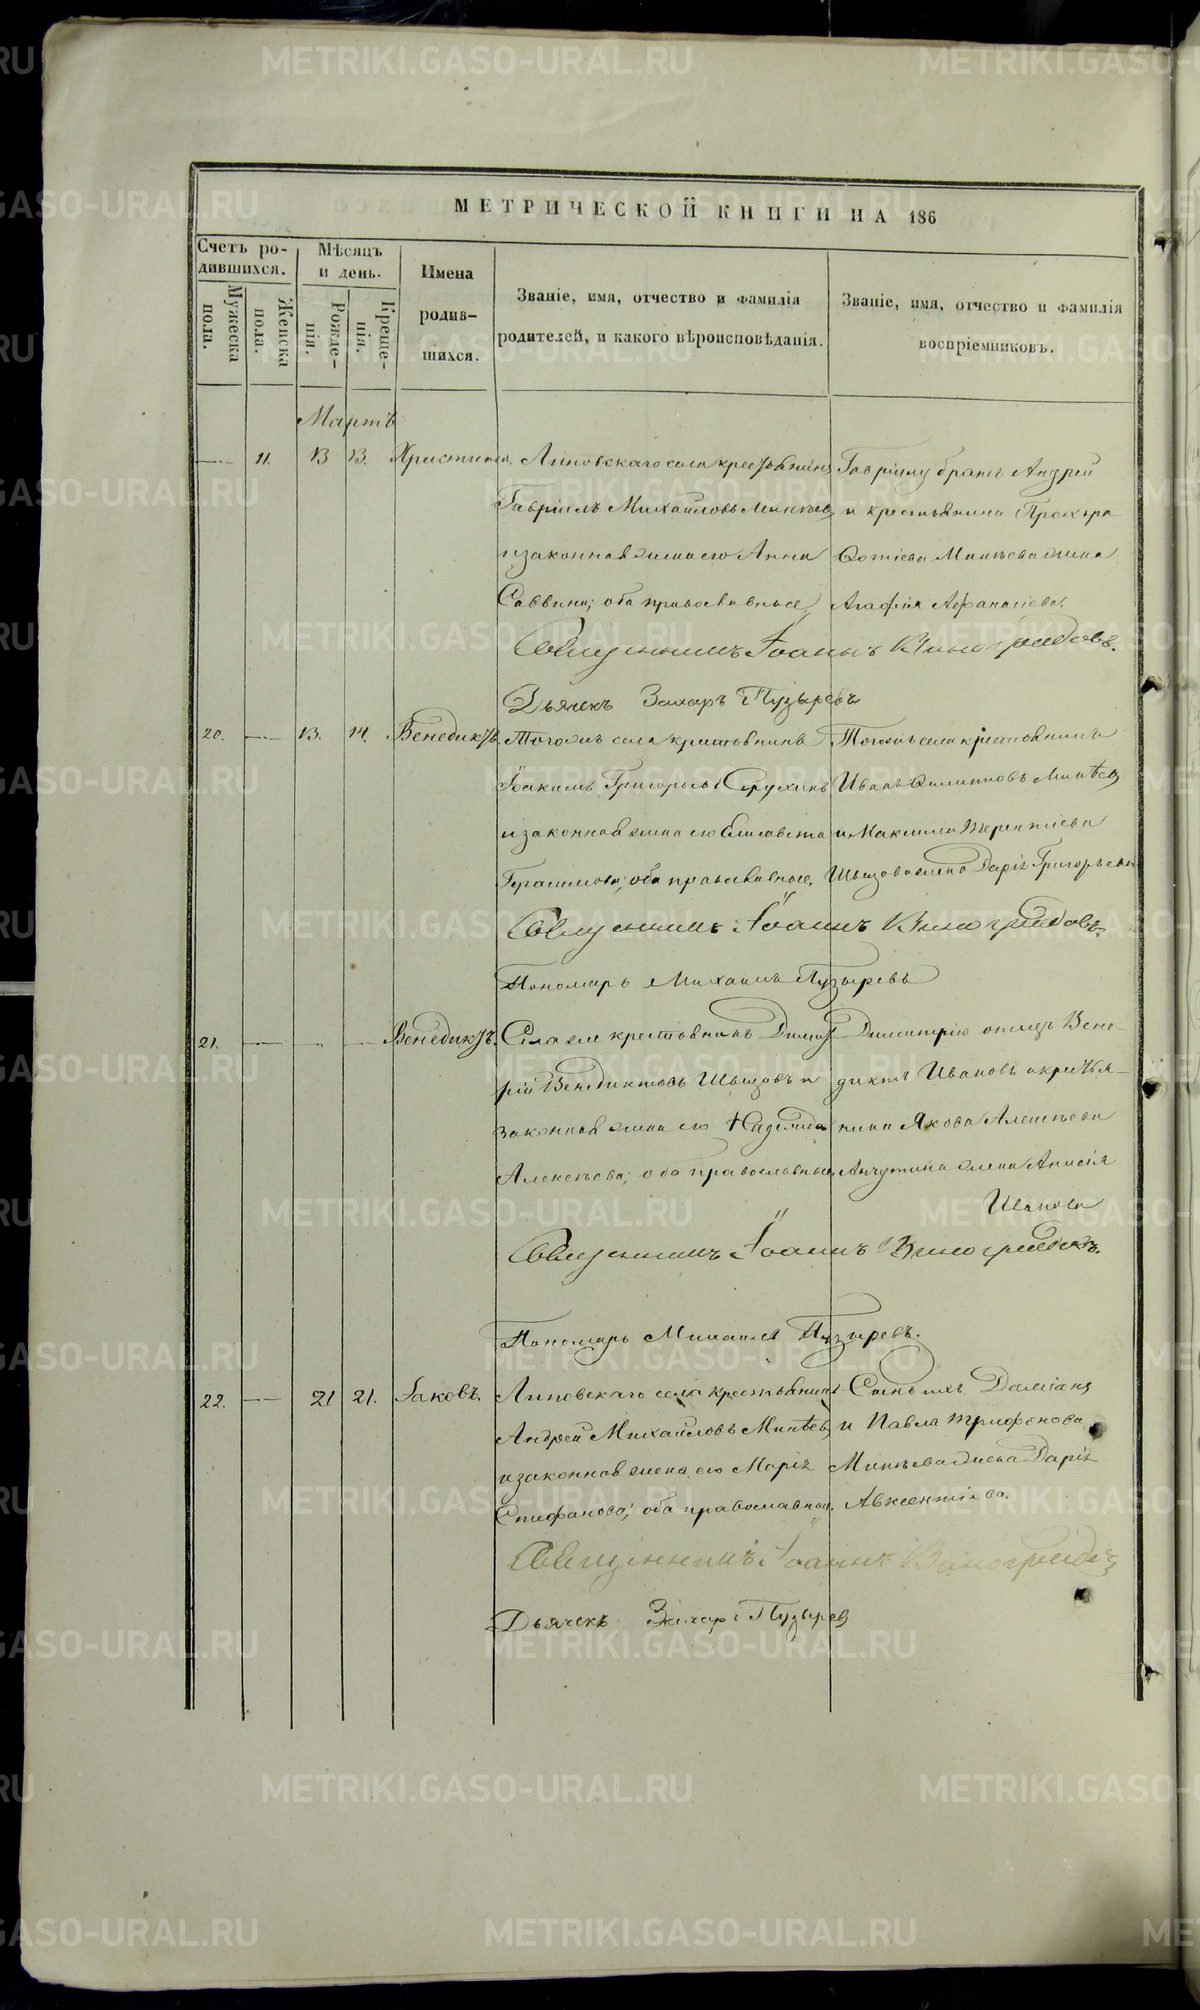 МЕТРИЧЕСКОЙ КНИГИ НА 186
Счетъ ро-
дившихся.
Мужеска
пола.
Женска
пола.
Мѣсяцъ
и день.
Рожде-
нія.
Креще-
нія.
Имена
родив-
шихся.
Званіе, имя, отчество и фамилія
родителей, и какого вѣроисповѣданія.
Званіе, имя, отчество и фамилія
воспріемниковъ.
Мартъ
11. 13 13. Христина. Липовскаго села крестьянинъ Гавріилу братъ Андрей
Гавріилъ Михайловъ Минѣевъ и крестьянина Прохора
и законная жена его Анна Фотіева Минѣева жена
Саввина; оба православные, Агафія Афанасіева.
Священникъ Іоаннъ Виноградовъ.
Дьячекъ Захаръ Пузыревъ
20. 13. 14. Венедиктъ. Тогожъ села крестьянинъ Тогожъ села крестьянинъ
Іоакимъ Григорьевъ Иванъ Филипповъ Минѣевъ
и законная жена его Елисавета и Максима Терентіева
Герасимова; оба православные, Швецова жена Дарія Григорьева
Священникъ Іоаннъ Виноградовъ.
Пономарь Михаилъ Пузыревъ
21. Венедиктъ. Села крестьянинъ Димит Димитрію отецъ Вене-
рій Венедиктовъ Швецовъ и диктъ Ивановъ и крестья-
законная жена его Надежда нина Якова Алексѣева
Алексѣева; оба православные, жена Анисія
Иванова
Священникъ Іоаннъ Виноградовъ.
Пономарь Михаилъ Пузыревъ.
22. 21 21. Іаковъ. Липовскаго села крестьянинъ Сынъ ихъ Даміанъ
Андрей Михайловъ Минѣевъ и Павла Трифонова
и законная жена его Марія Минѣева жена Дарія
Стефанова; оба православные. Авксентіева.
Священникъ Іоаннъ Виноградовъ
Дьячекъ Захаръ Пузыревъ
METRIKI.GASO-URAL.RU